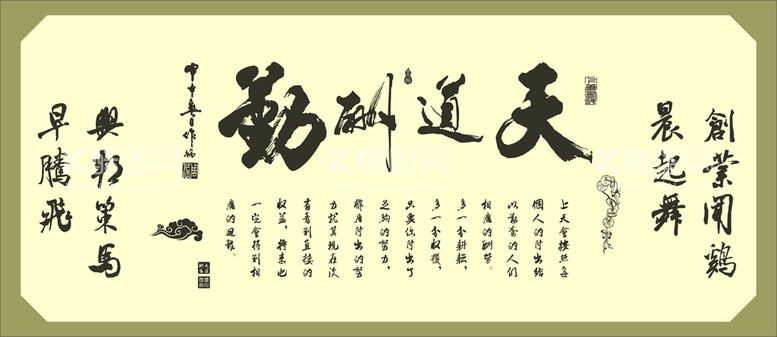 創業聞鷄
晨起舞
天道酬勤
上天會按照每
個人的付出給
以勤奮的人們
相應的酬勞。
多一分耕耘,
多一分收獲,
只要你付出了
足夠的努力,
付出的努
力就算現在沒
有看到直接的
收益,將來也
一定會得到相
應的回報。
興邦策馬
早騰飛